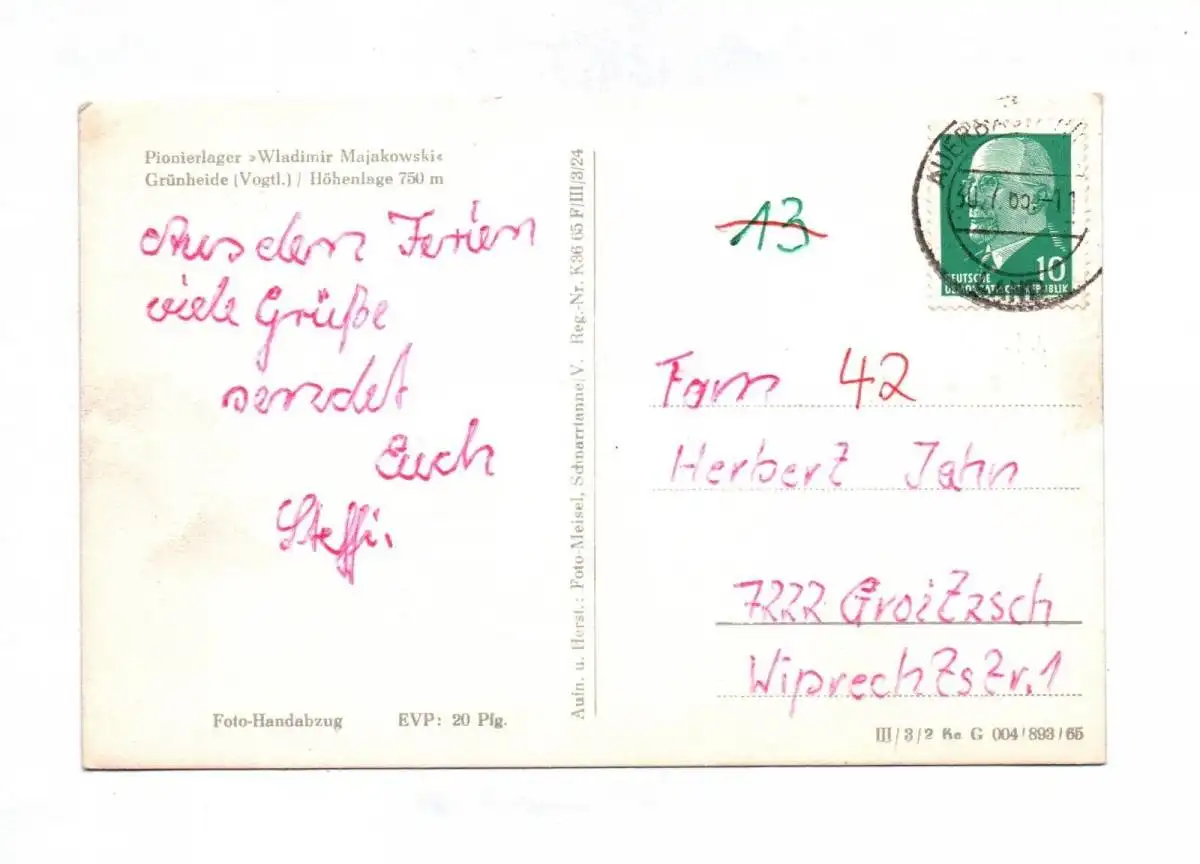 Pionierlager »Wladimir Majakowski«
Grünheide (Vogtl.) / Höhenlage 750 m
Aus den Ferien
viele Grüße
sendet
Euch
Steffi.
Foto-Handabzug EVP: 20 Pfg.
Aufn. u. Herst.: Foto-Meisel, Schnarrtanne/V. Reg.-Nr. K36 65 F/III/3/24
13
10
DEUTSCHE
DEMOKRATISCHE REPUBLIK
Fam 42
Herbert Jahn
7222 Groitzsch
Wiprechtstr. 1
III/3/2 Ke G 004/893/65